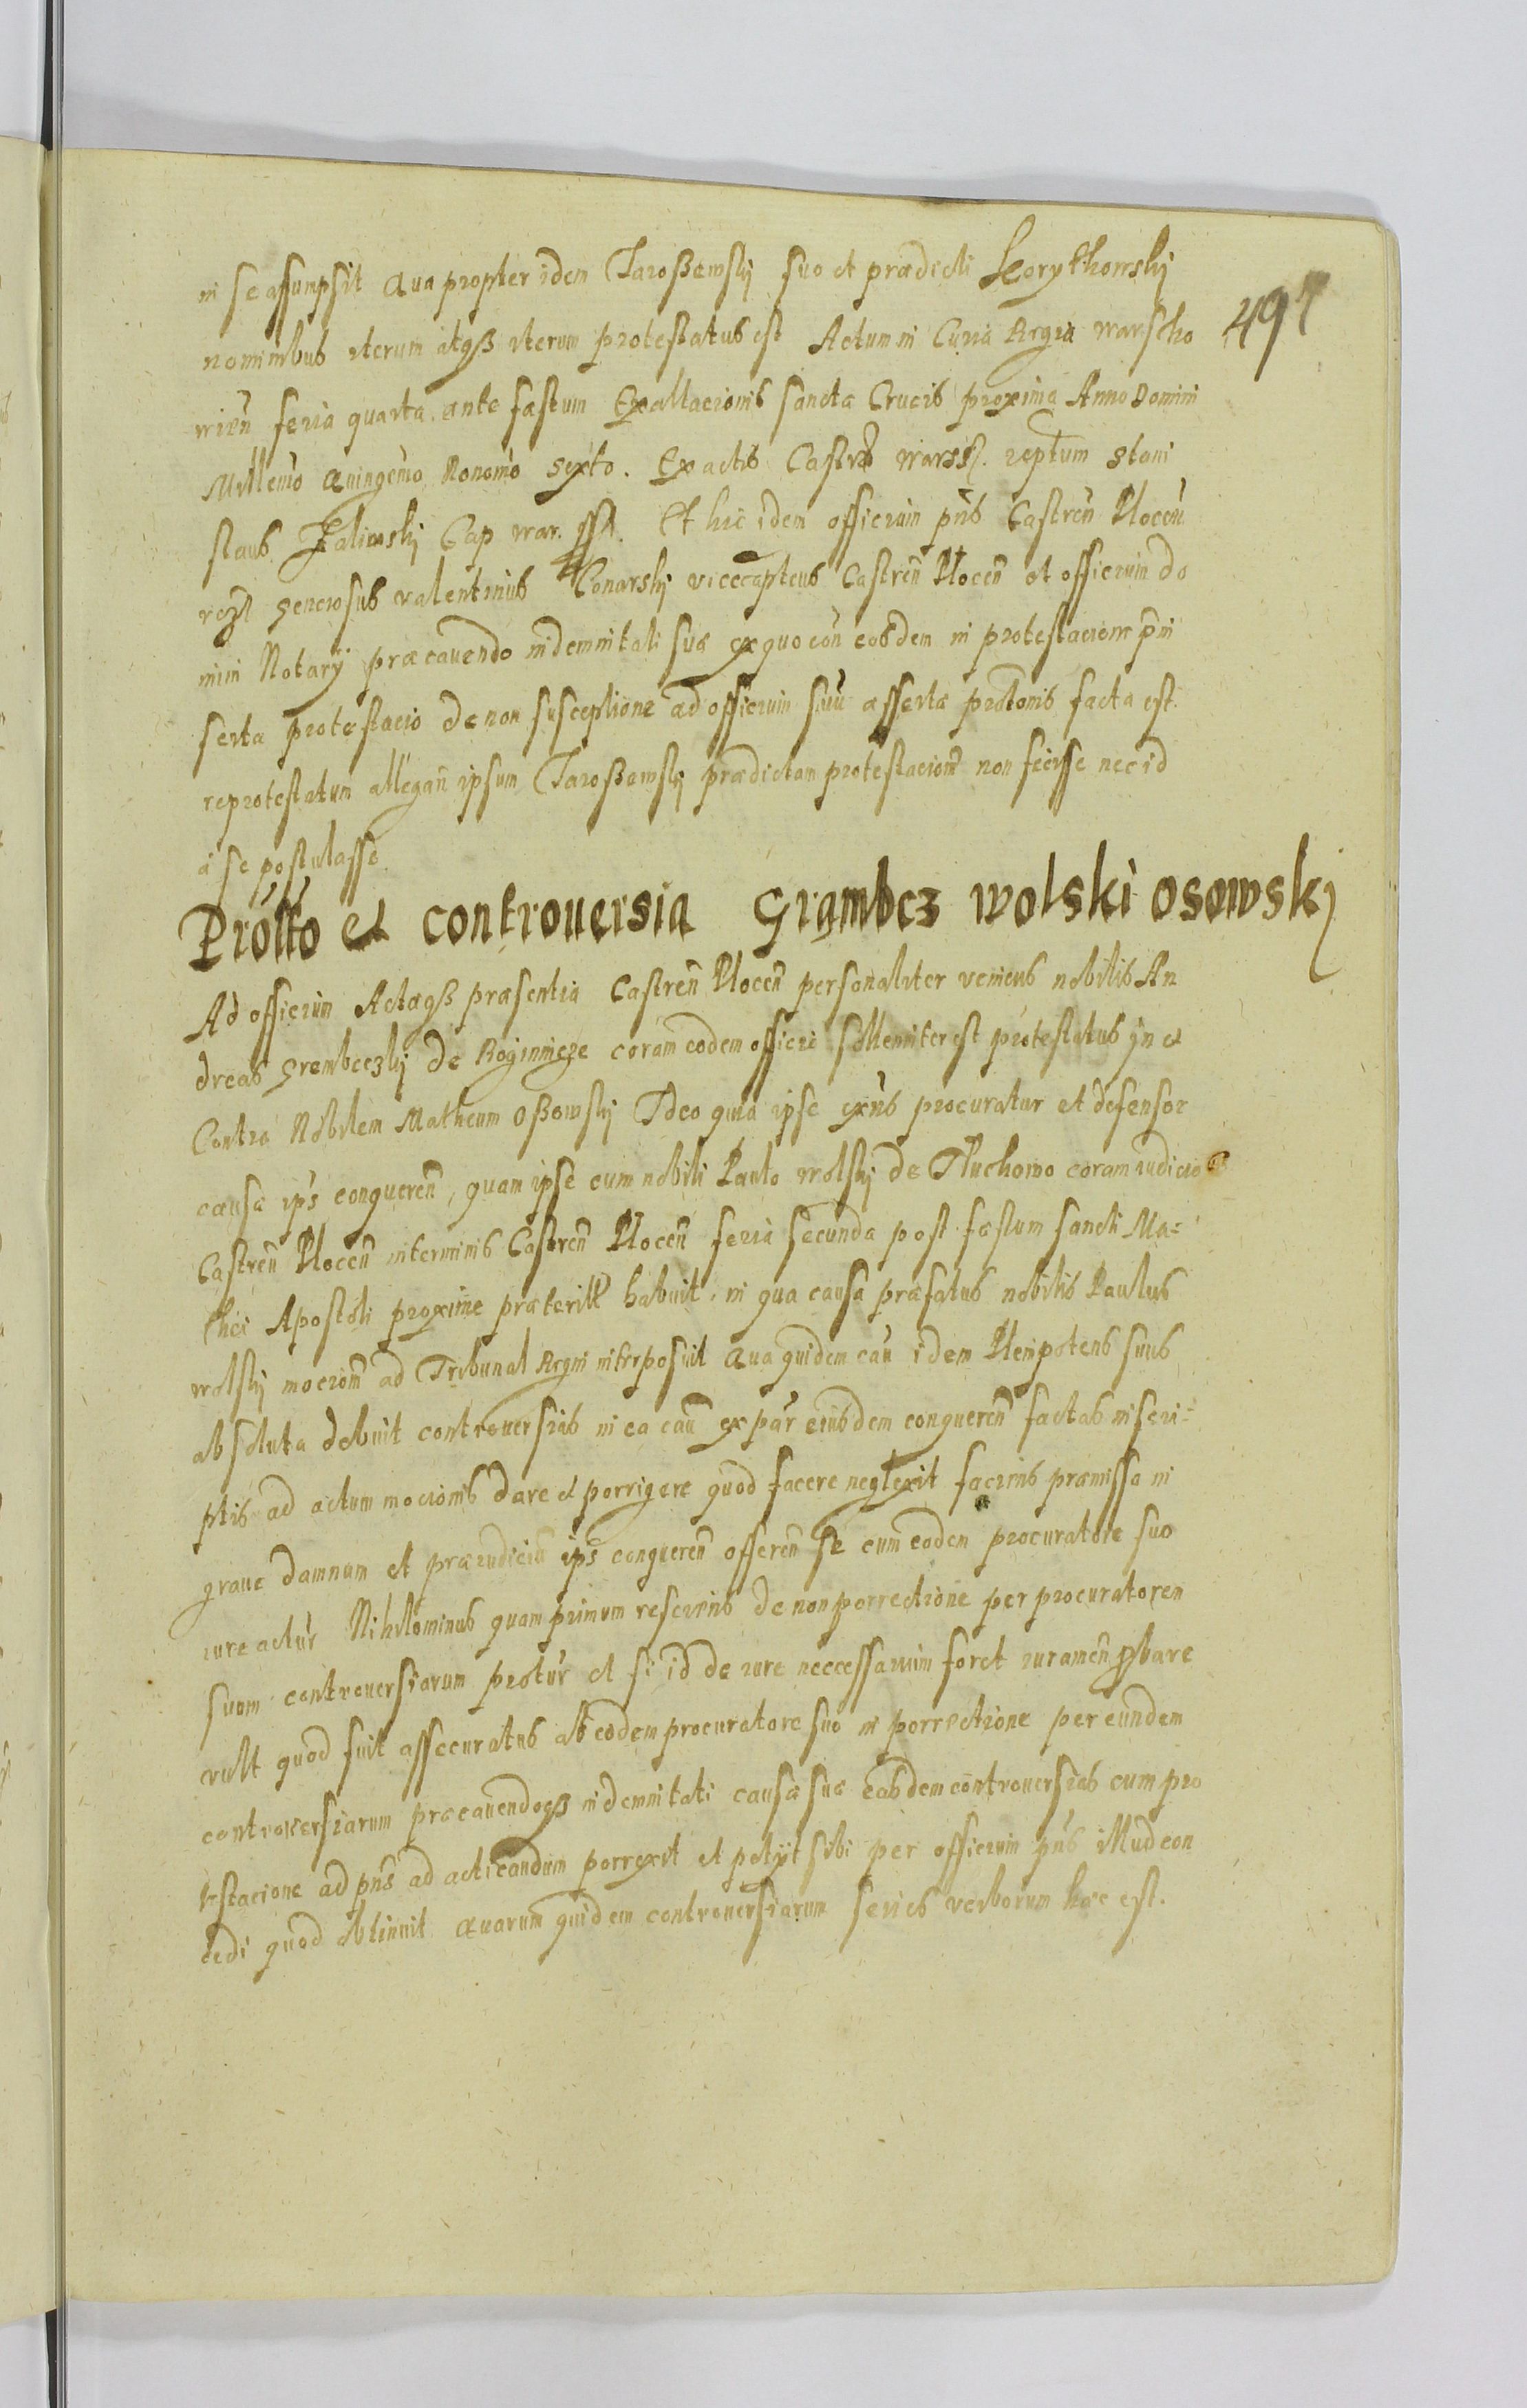 in se assumpsit Quapropter idem Jaroßewskj suo et praedicti Korythowskj
497
nominibus iterum atqß iterum protestatus est Actum in Curia Regia warscho
wień feria quarta ante festum Exaltacionis sanctae Crucis proxima Anno Domini
Millemo Quingemo Nonomo sexto. Ex actis Castrń warss. reptum Stani
slaus Zaliwskj Cap war. sst. Et hic idem officium pńs Castreń Ploceń
generosus valentinus Conarskj vicecapteus Castreń Ploceń et officium do
mini Notarij praecavendo indemnitati suae ex quo coń eosdem in protestacione pin
serta protestacio de non susceptione ad officium suū assertae prottonis facta est.
reprotestatum allegań ipsum Jaroßewskj praedictam protestacionē non fecisse nec id
a se postulasse
Protto et controuersia Grambcz wolski osowskj
Ad officium Actaqß praesentia Castreń Ploceń personaliter veniens nobilis An
dreas Grembeczkj de Roginnicze coram eodem officio sollenniter est protestatus in et
Contra Nobilem Matheum Oßowskj Ideo quia ipse exńs procurator et defensor
causae ips̄ conquereń, quam ipse cum nobili Paulo wolskj de Tluchowo coram iudicio
Castreń Ploceń in terminis Castreń Ploceń feria secunda post festum sancti Ma=
thei Apostoli proxime praeteritt habuit, in qua causa praefatus nobilis Paulus
wolskj mocionē ad Tribunal Regni interposuit Qua quidem caū idem Plenipotens suus
absoluta debuit controuersias in ea caū ex par̄ eiusdem conquereń factas in scri=
ptis ad actum mocionis dare et porrigere quod facere neglexit faciens praemissa in
graue damnum et praeiudiciū ips̄ conquereń offereń se cum eodem procuratore suo
iure actur̄ Nihilominus quam primum resciens de non porrectione per procuratorem
suum controuersiarum protur̄ et si id de iure neccessarium foret iurameń pbare
vult quod fuit assecuratus ab eodem procuratore suo in porrectione per eundem
controuersiarum praecauendoqß indemnitati causae suae easdem controuersias cum pro
testacione ad pńs ad acticandum porrexit et petijt sibi per officium pńs illud con
cedi quod obtinuit Quarum quidem controuersiarum series verborum haec est.